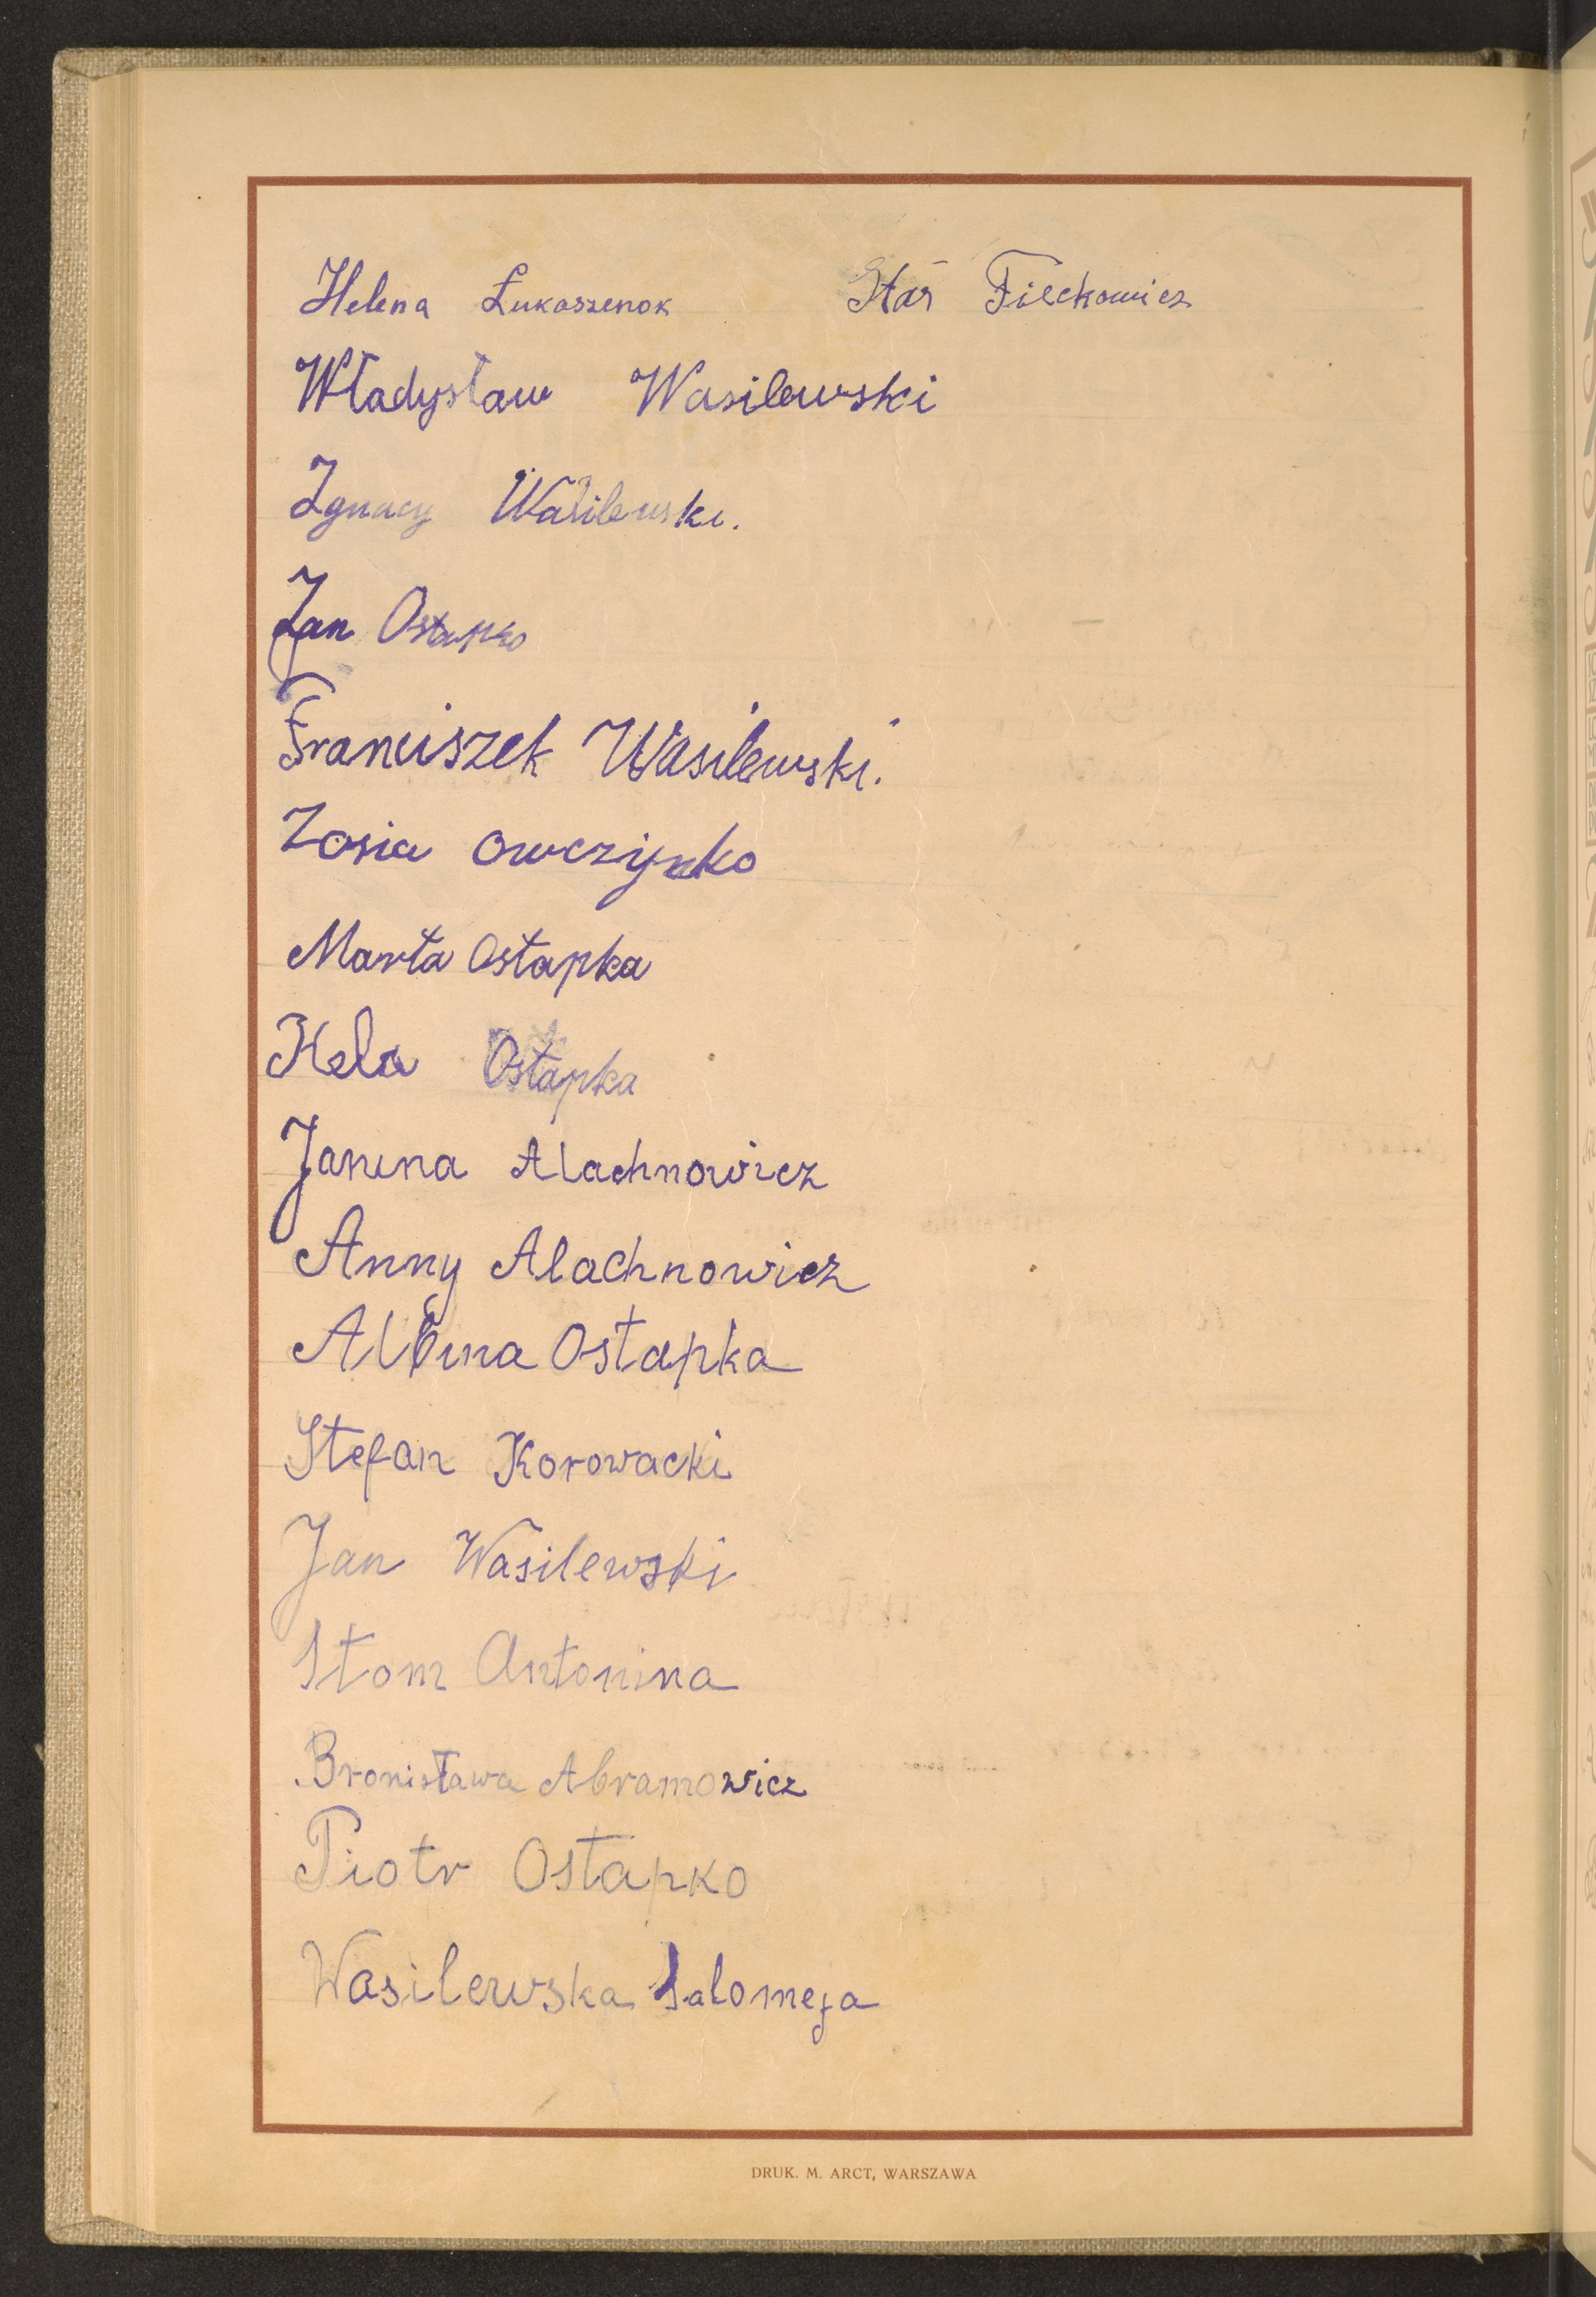 Helena Łukaszenok Staś Fiećkowicz
Władysław Wasilewski
Ignacy Wasilewski.
Jan Ostapko
Franciszek Wasilewski.
Zosia Owczynko
Marta Ostapka
Hela Ostapka
Janina Alachnowicz
Anny Alachnowicz
Albina Ostapka
Stefan Korowacki
Jan Wasilewski
Stom Antonina
Bronisława Abramowicz
Piotr Ostapko
Wasilewska Salomeja
DRUK. M. ARCT, WARSZAWA